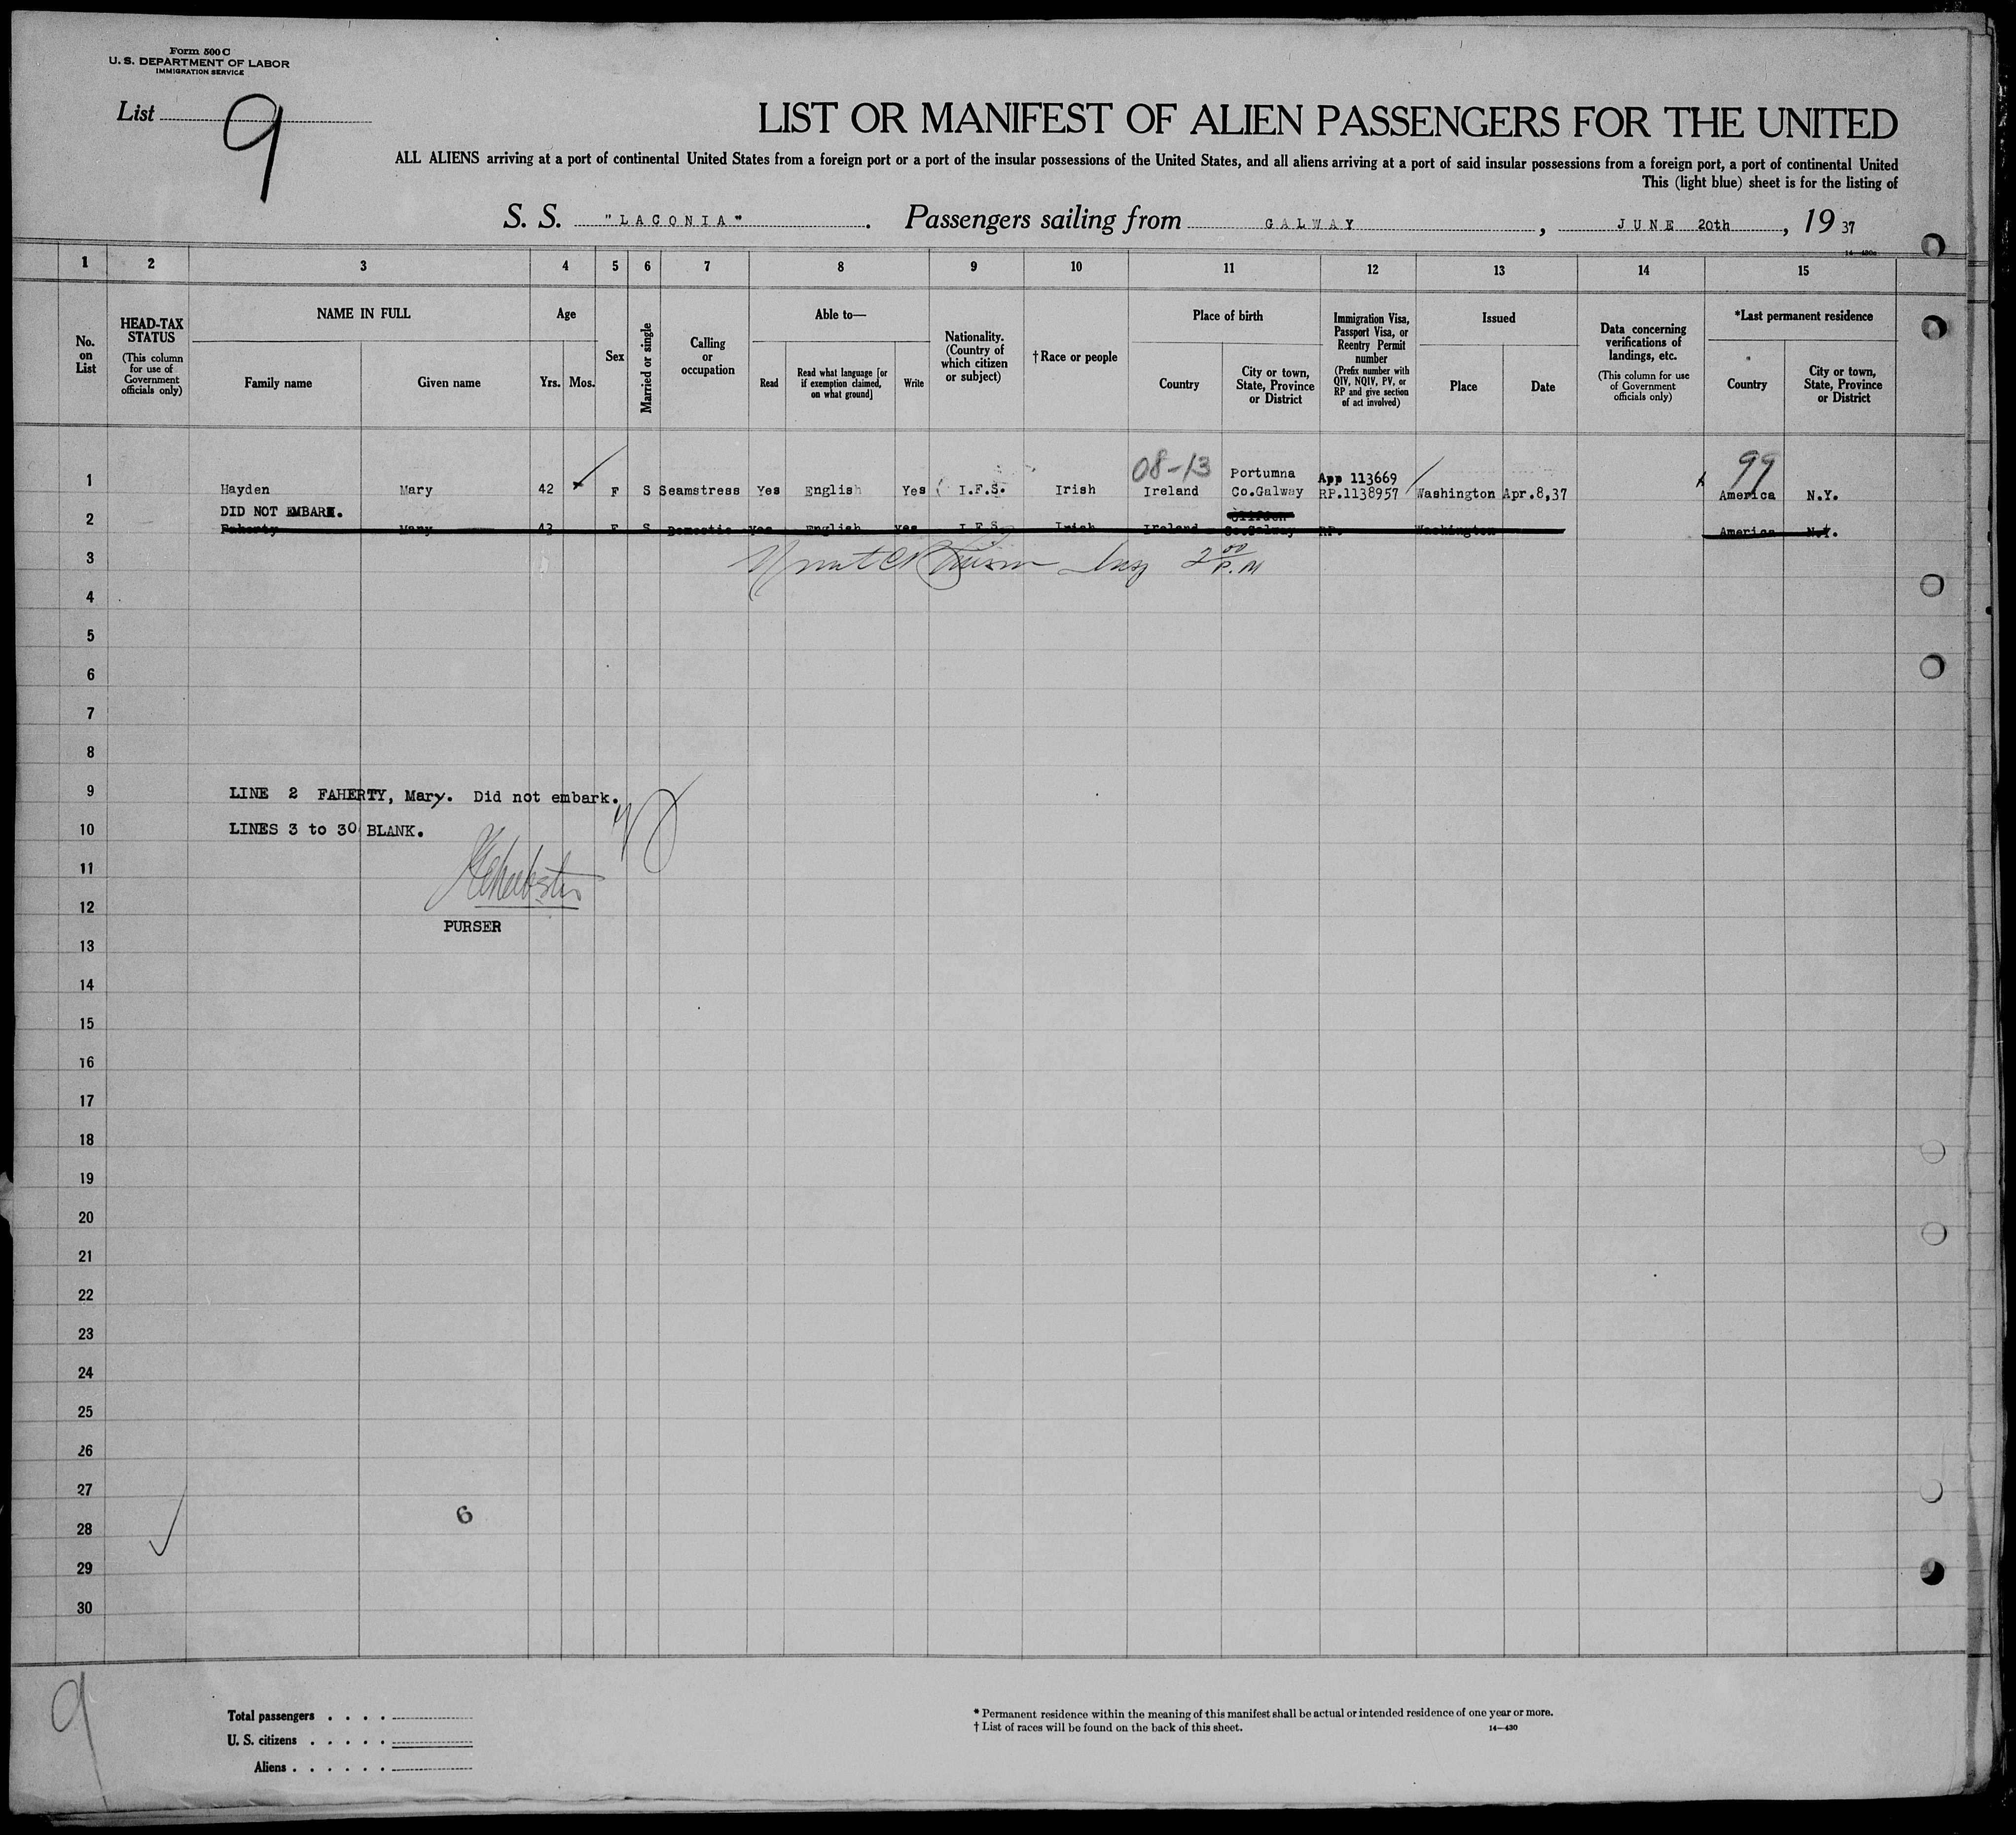 Form 500 C
U. S. DEPARTMENT OF LABOR
IMMIGRATION SERVICE
List 9
LIST OR MANIFEST OF ALIEN PASSENGERS FOR THE UNITED
ALL ALIENS arriving at a port of continental United States from a foreign port or a port of the insular possessions of the United States, and all aliens arriving at a port of said insular possessions from a foreign port, a port of continental United
This (light blue) sheet is for the listing of
S. S. "LACONIA". Passengers sailing from GALWAY, JUNE 20th, 19 37
1 2 3 4 5 6 7 8 9 10 11 12 13 14 15
No. on List
HEAD-TAX STATUS (This column for use of Government officials only)
NAME IN FULL
Family name
Given name
Age
Yrs. Mos.
Sex
Married or single
Calling or occupation
Able to—
Read
Read what language [or if exemption claimed, on what ground]
Write
Nationality. (Country of which citizen or subject)
†Race or people
Place of birth
Country
City or town, State, Province or District
Immigration Visa, Passport Visa, or Reentry Permit number (Prefix number with QIV, NQIV, PV, or RP and give section of act involved)
Issued
Place
Date
Data concerning verifications of landings, etc. (This column for use of Government officials only)
*Last permanent residence
Country
City or town, State, Province or District
08-13 Portumna App 113669 99
1 Hayden Mary 42 F S Seamstress Yes English Yes I.F.S. Irish Ireland Co.Galway RP.1138957 Washington Apr.8,37 America N.Y.
DID NOT EMBARK.
Clifden
2 Faherty Mary 43 F S Domestic Yes English Yes I.F.S. Irish Ireland Co.Galway RP. Washington America N.Y.
3 2 00 P.M
4
5
6
7
8
9 LINE 2 FAHERTY, Mary. Did not embark.
10 LINES 3 to 30 BLANK.
11
12
PURSER
13
14
15
16
17
18
19
20
21
22
23
24
25
26
27
6
28
29
30
9
Total passengers
U. S. citizens
Aliens
* Permanent residence within the meaning of this manifest shall be actual or intended residence of one year or more.
† List of races will be found on the back of this sheet.
14—430